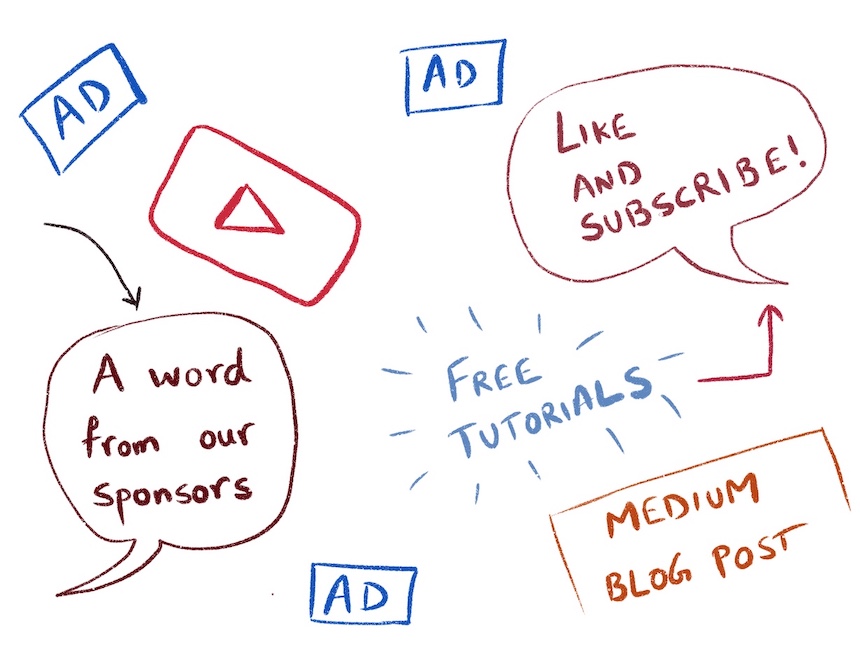 AD
AD
LIKE
AND
SUBSCRIBE!
A word
from our
sponsors
FREE
TUTORIALS
MEDIUM
BLOG POST
AD